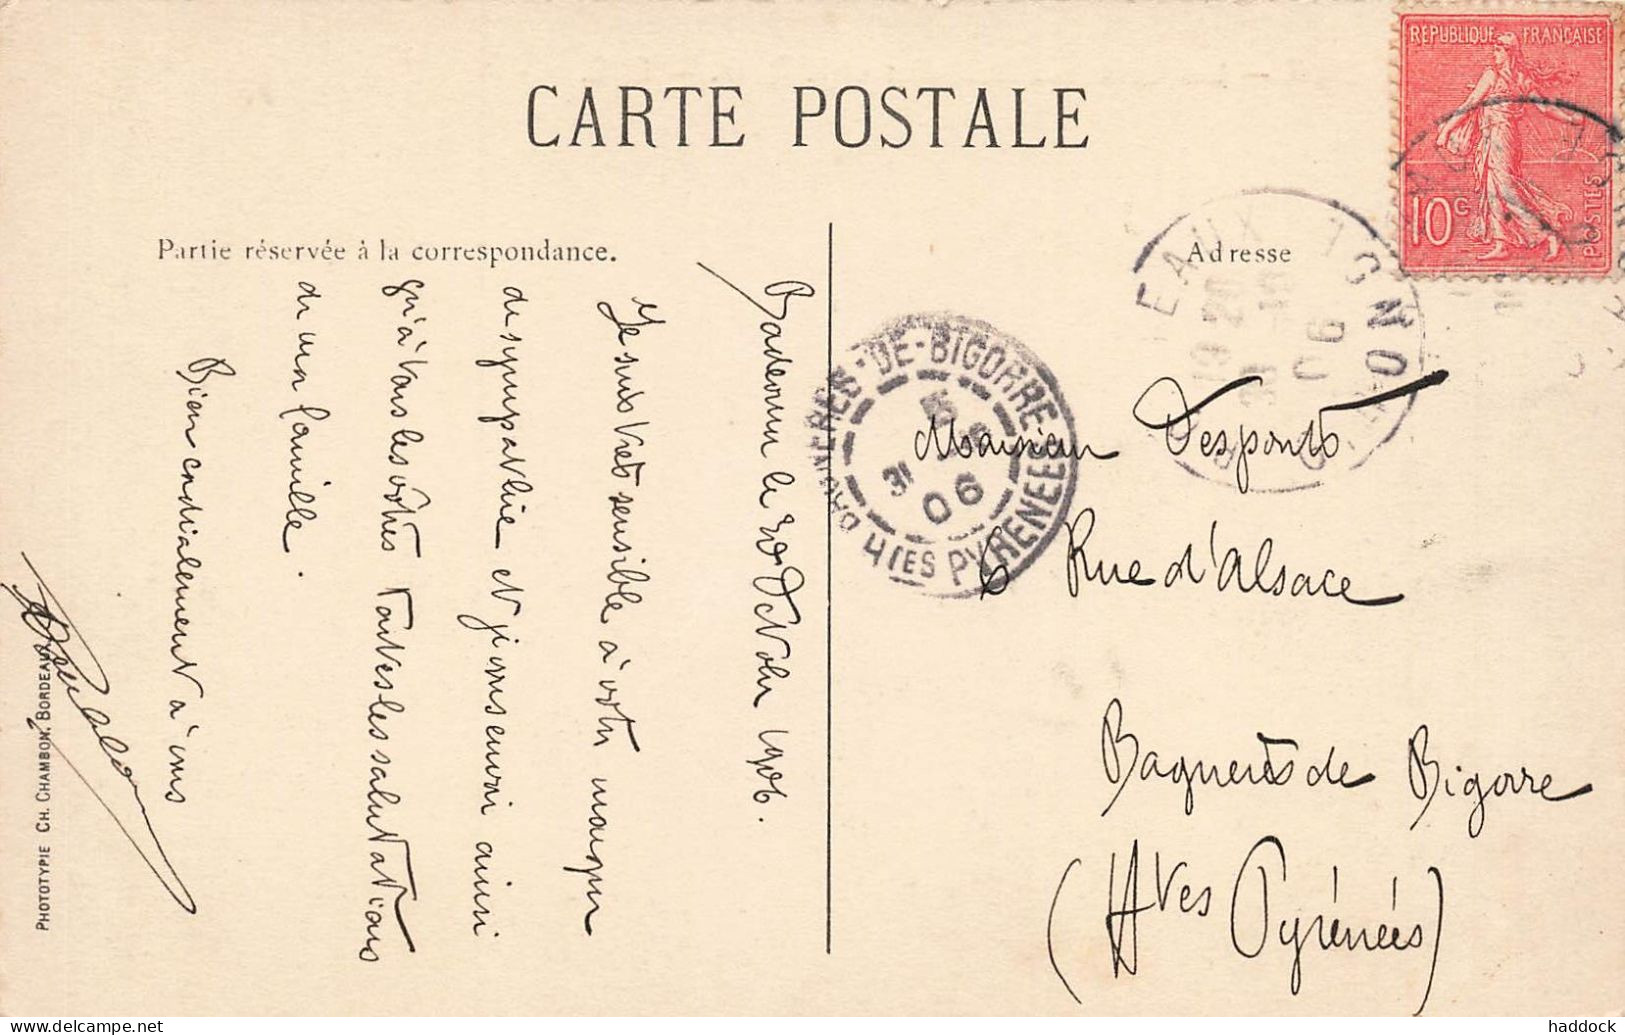 CARTE POSTALE
RÉPUBLIQUE FRANÇAISE
10c
POSTES
Partie réservée à la correspondance.
Adresse
le 30 Octobre 1906.
Je suis très sensible à votre marque
de sympathie et vous envoi ainsi
qu'à tous les vôtres toutes les salutations
de ma famille.
Bien cordialement à vous
BAGNERES-DE-BIGORRE
31
06
HTES PYRENEES
EAUX
06
Monsieur Desponts
6 Rue d'Alsace
Bagneres de Bigorre
(Htes Pyrénées)
PHOTOTYPIE CH. CHAMBON, BORDEAUX
delcampe.net
haddock